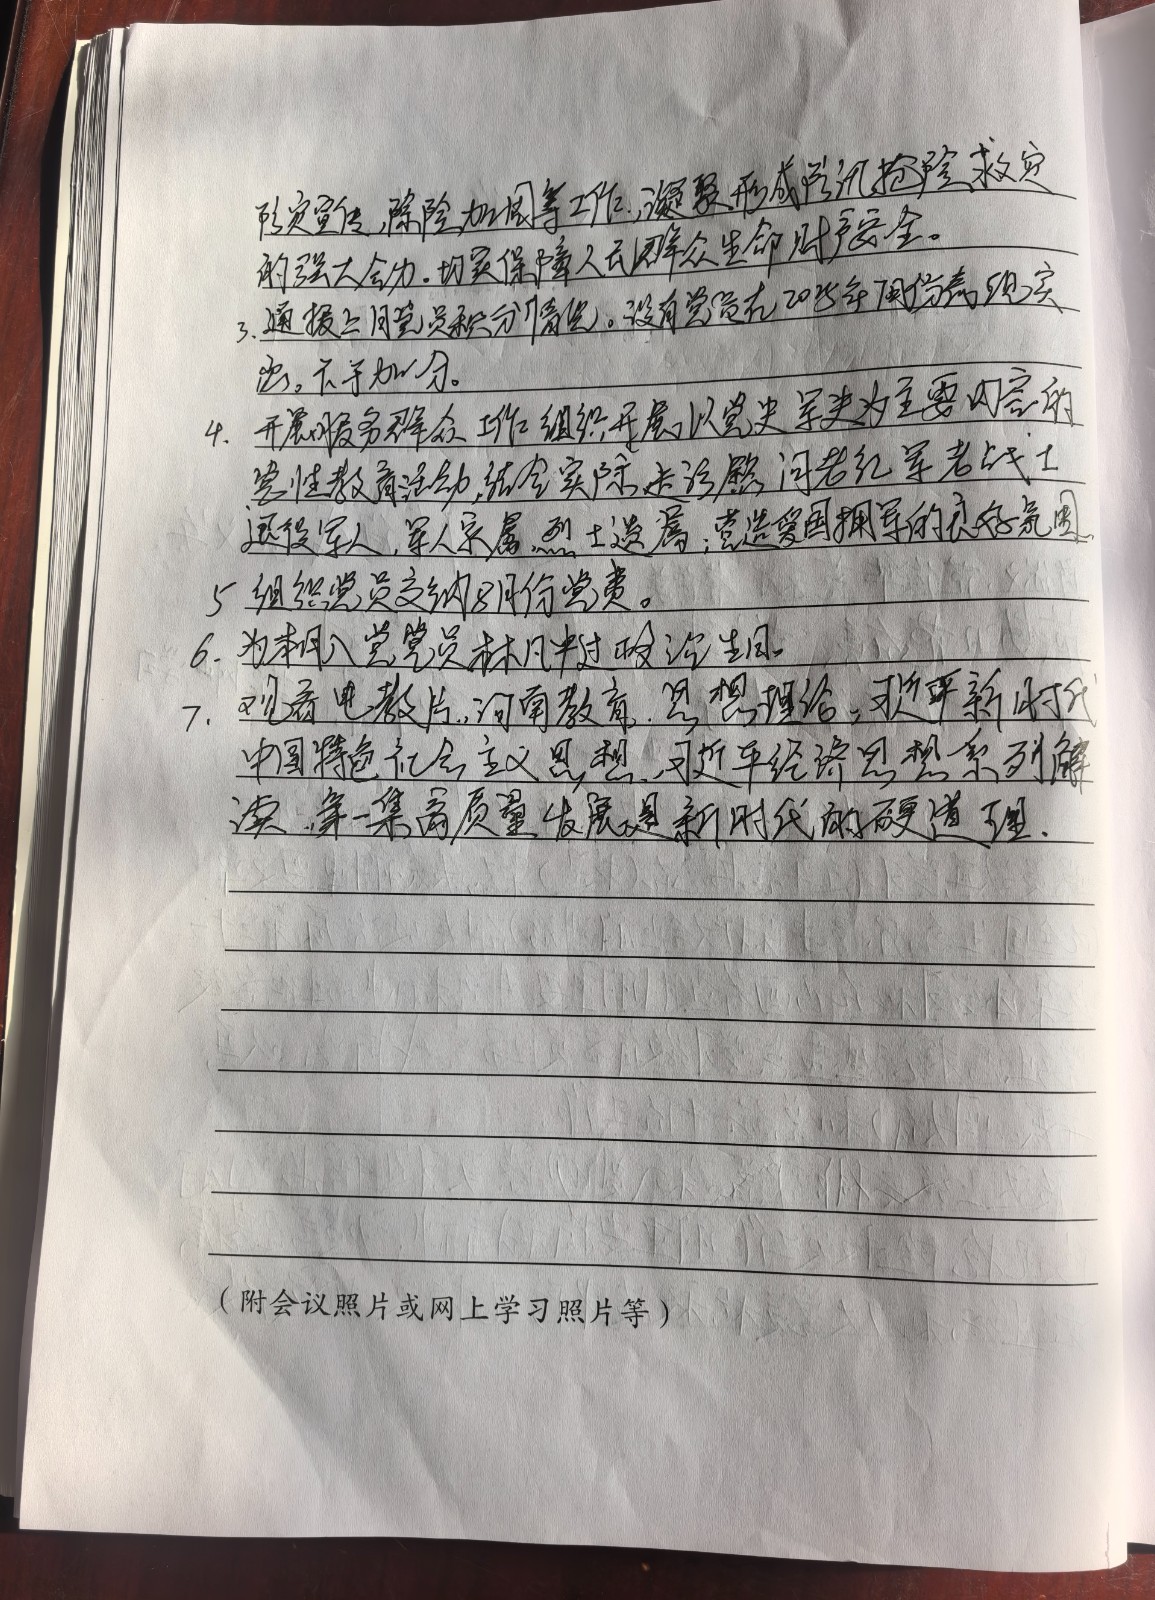 防灾宣传,除险加固等工作,凝聚形成防汛抢险救灾
的强大合力。切实保障人民群众生命财产安全。
3.通报上月党员积分情况。没有党员在2025年7月份表现突
出,不予加分。
4.开展服务群众工作组织开展以党史军史为主要内容的
党性教育活动,结合实际走访慰问老红军老战士
退役军人,军人家属,烈士遗属,营造爱国拥军的良好氛围
5 组织党员交纳8月份党费。
6.为本月入党党员林凡中过政治生日。
7.观看电教片,河南教育,思想理论,习近平新时代
中国特色社会主义思想,习近平经济思想系列解
读,第一集高质量发展是新时代的硬道理.
(附会议照片或网上学习照片等)